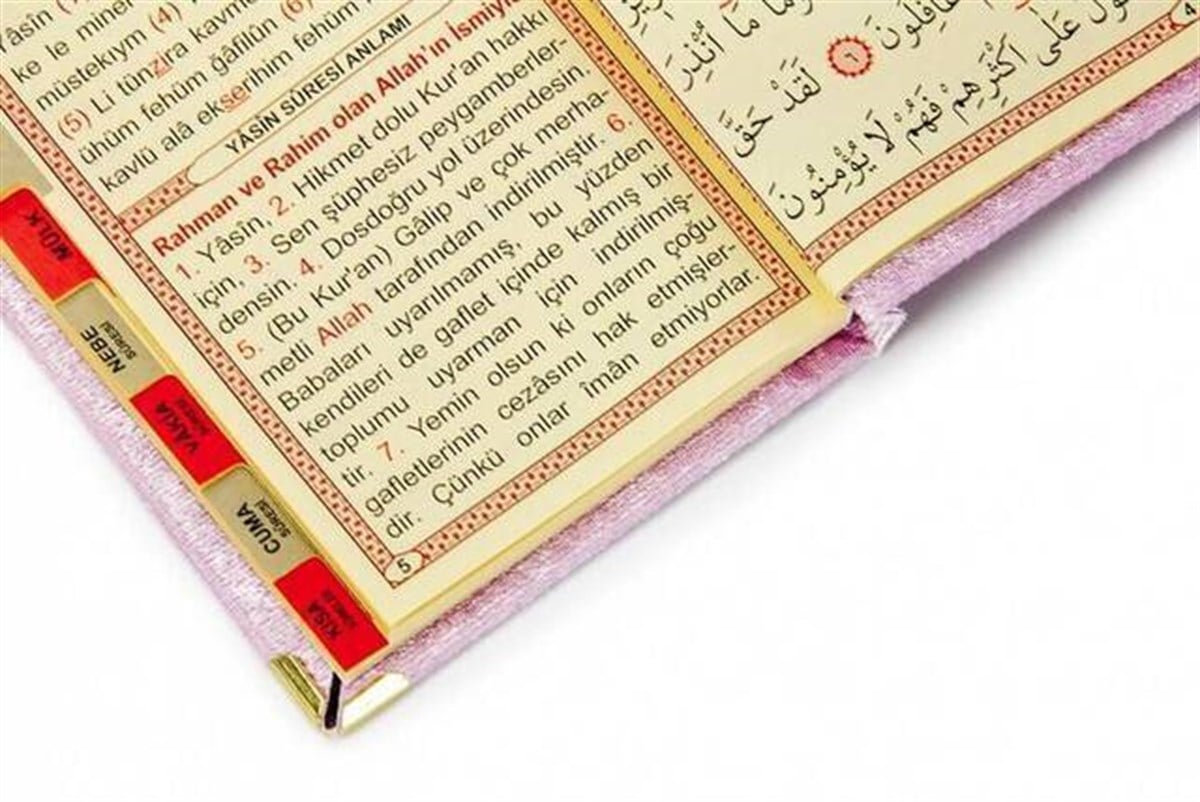 Yâsîn (1)
ke le minel
müstekıym (4)
(5) Li tünzira kavmen
ühüm fehüm ğâfilûn (6)
kavlü alâ ekserihim fehüm
YÂSÎN SÛRESİ ANLAMI
Rahman ve Rahim olan Allah'ın İsmiyle
1. Yâsîn, 2. Hikmet dolu Kur'an hakkı
için, 3. Sen şüphesiz peygamberler-
densin. 4. Dosdoğru yol üzerindesin.
5. (Bu Kur'an) Gâlip ve çok merha-
metli Allah tarafından indirilmiştir. 6.
Babaları uyarılmamış, bu yüzden
kendileri de gaflet içinde kalmış bir
toplumu uyarman için indirilmiş-
tir. 7. Yemin olsun ki onların çoğu
gafletlerinin cezâsını hak etmişler-
dir. Çünkü onlar îmân etmiyorlar.
5
MÜLK
NEBE
SÛRESİ
VÂKIA
SÛRESİ
CUMA
SÛRESİ
KISA
SÛRELER
مَا أُنْذِرَ
غَافِلُونَ ٦ لَقَدْ حَقَّ
عَلَى أَكْثَرِهِمْ فَهُمْ لَا يُؤْمِنُونَ
4